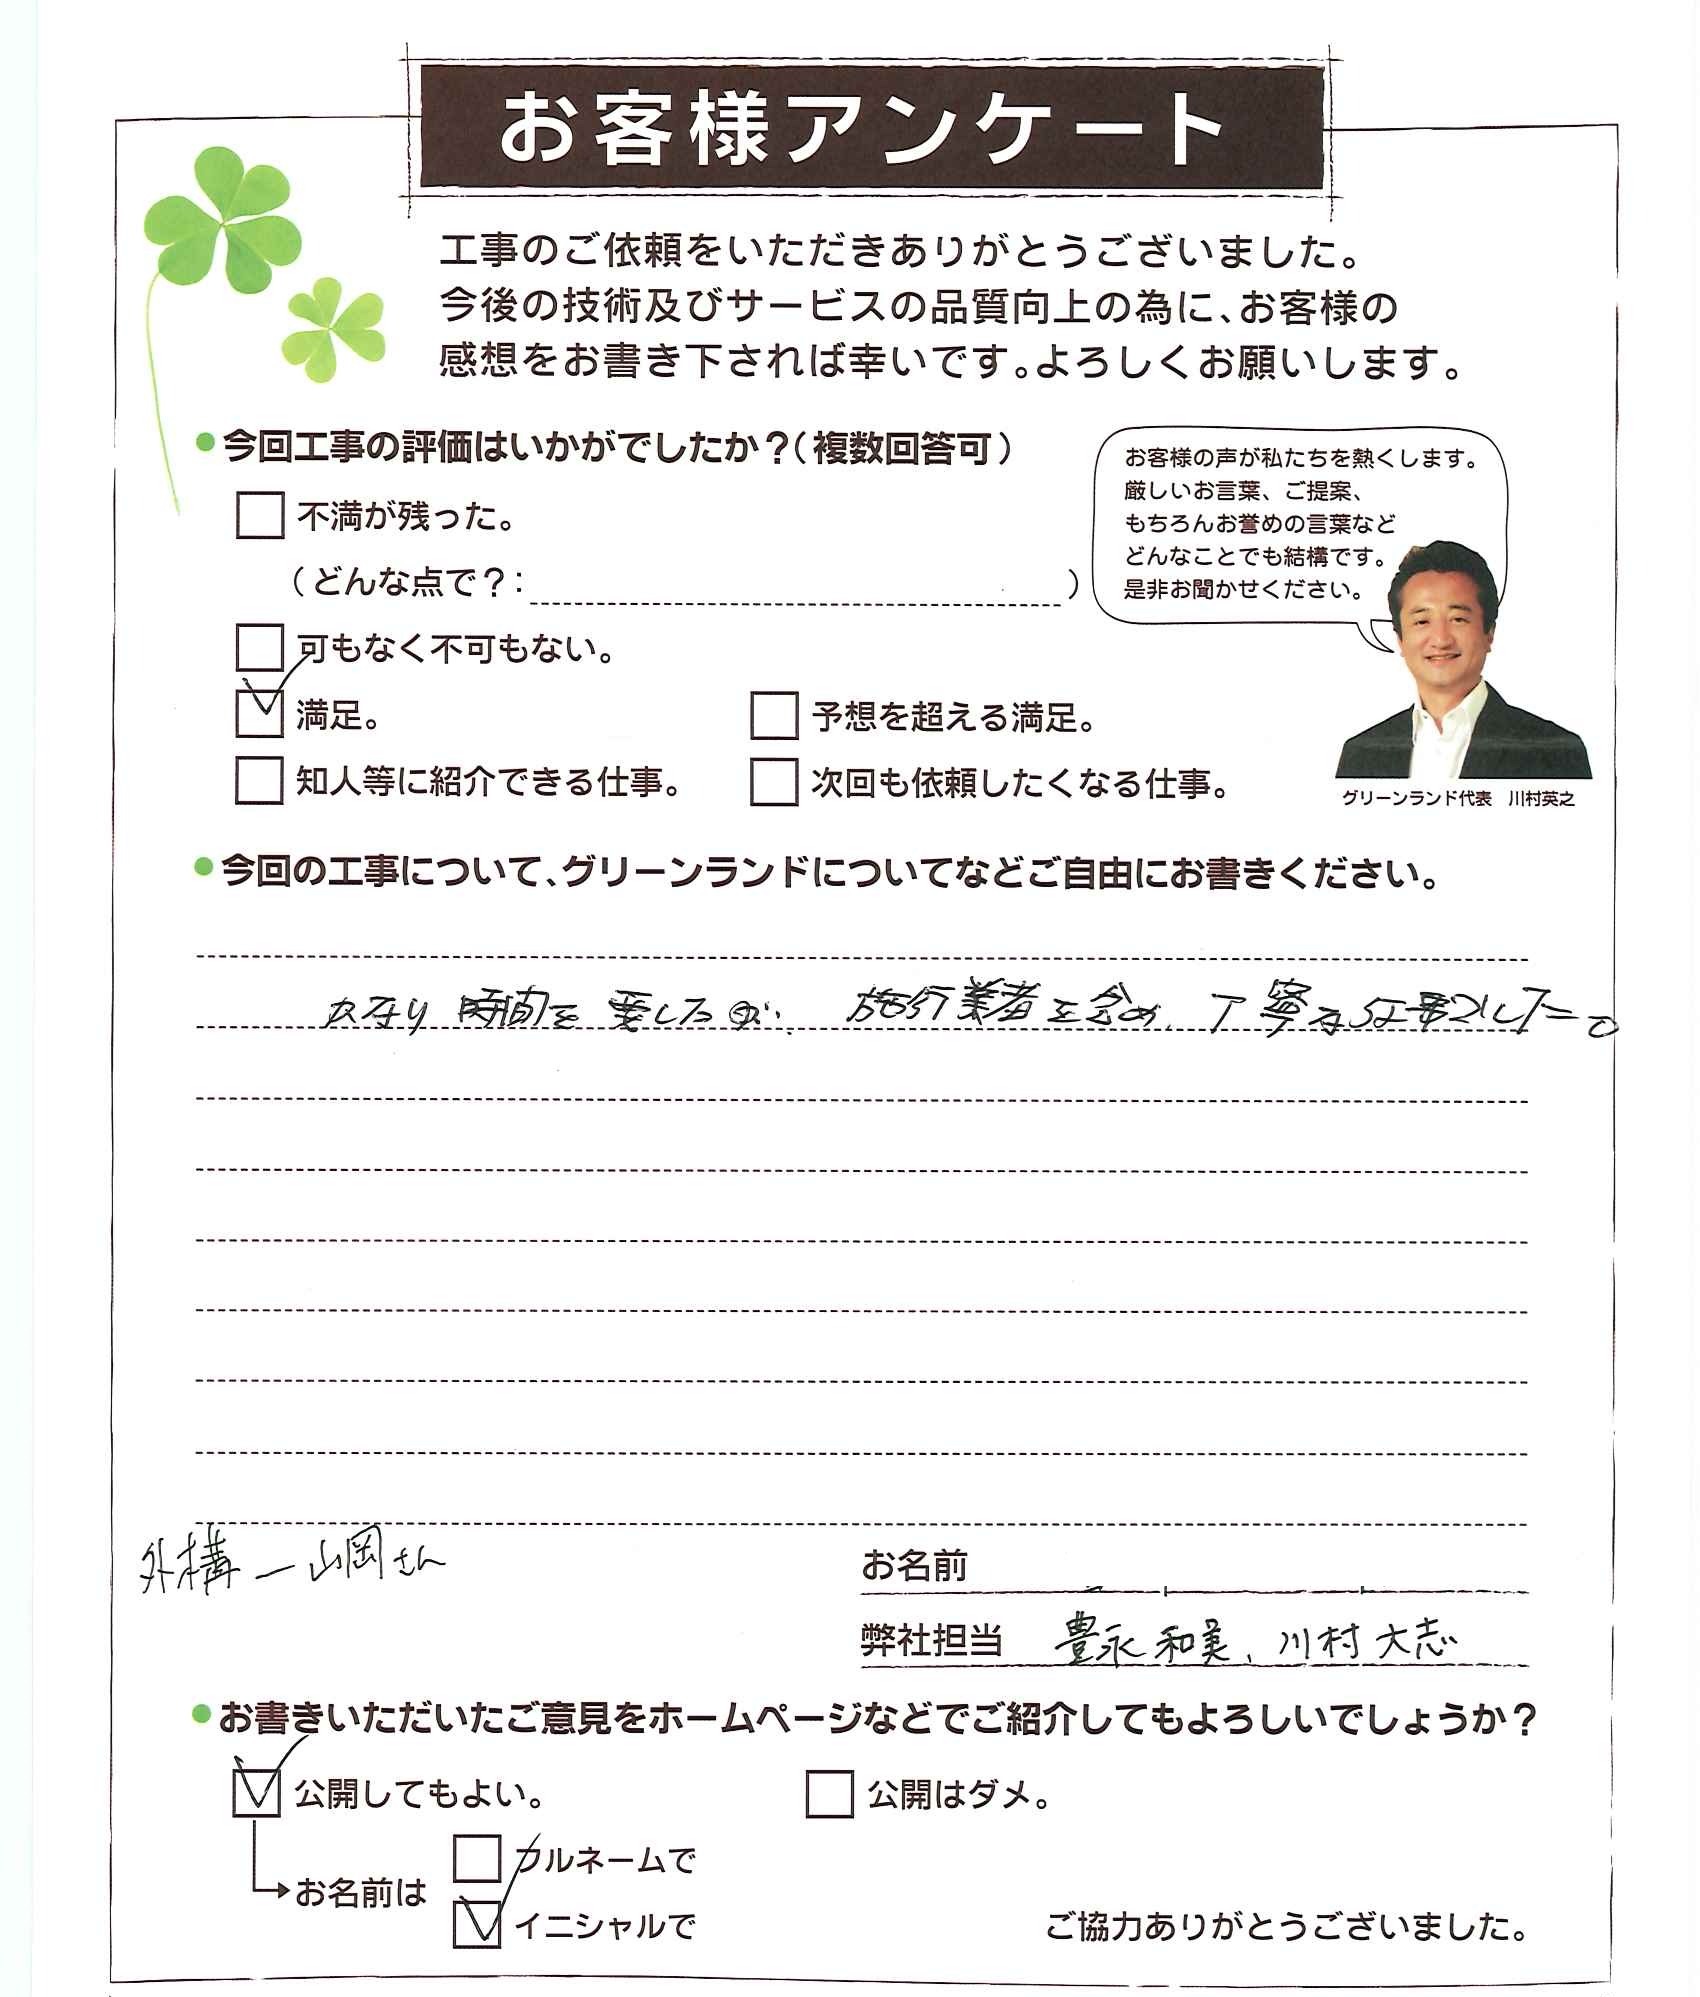 お客様アンケート
工事のご依頼をいただきありがとうございました。
今後の技術及びサービスの品質向上の為に、お客様の
感想をお書き下されば幸いです。よろしくお願いします。
●今回工事の評価はいかがでしたか？（複数回答可）
不満が残った。
（どんな点で？：　　　　）
可もなく不可もない。
満足。
予想を超える満足。
知人等に紹介できる仕事。
次回も依頼したくなる仕事。
お客様の声が私たちを熱くします。
厳しいお言葉、ご提案、
もちろんお誉めの言葉など
どんなことでも結構です。
是非お聞かせください。
グリーンランド代表　川村英之
●今回の工事について、グリーンランドについてなどご自由にお書きください。
かなり時間を要したが、施行業者を含め、丁寧な仕事でした。
外構ー山岡さん
お名前
弊社担当　豊永和美、川村大志
●お書きいただいたご意見をホームページなどでご紹介してもよろしいでしょうか？
公開してもよい。
公開はダメ。
お名前は
フルネームで
イニシャルで
ご協力ありがとうございました。